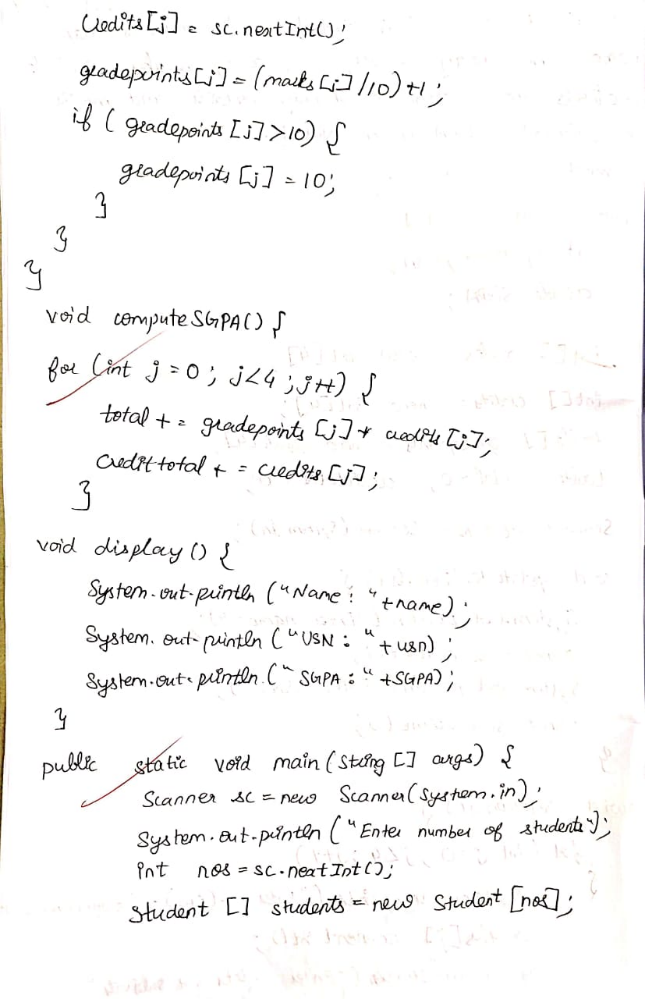 credits[j] = sc.nextInt();
gradepoints[j] = (marks[j]/10)+1;
if (gradepoints[j]>10) {
gradepoints[j] = 10;
}
}
}
void computeSGPA() {
for (int j = 0; j<4; j++) {
total += gradepoints[j] * credits[j];
credittotal += credits[j];
}
void display() {
System.out.println("Name: "+name);
System.out.println("USN: "+usn);
System.out.println("SGPA: "+SGPA);
}
public static void main(String [] args) {
Scanner sc = new Scanner(System.in);
System.out.println("Enter number of students");
int nos = sc.nextInt();
Student [] students = new Student [nos];